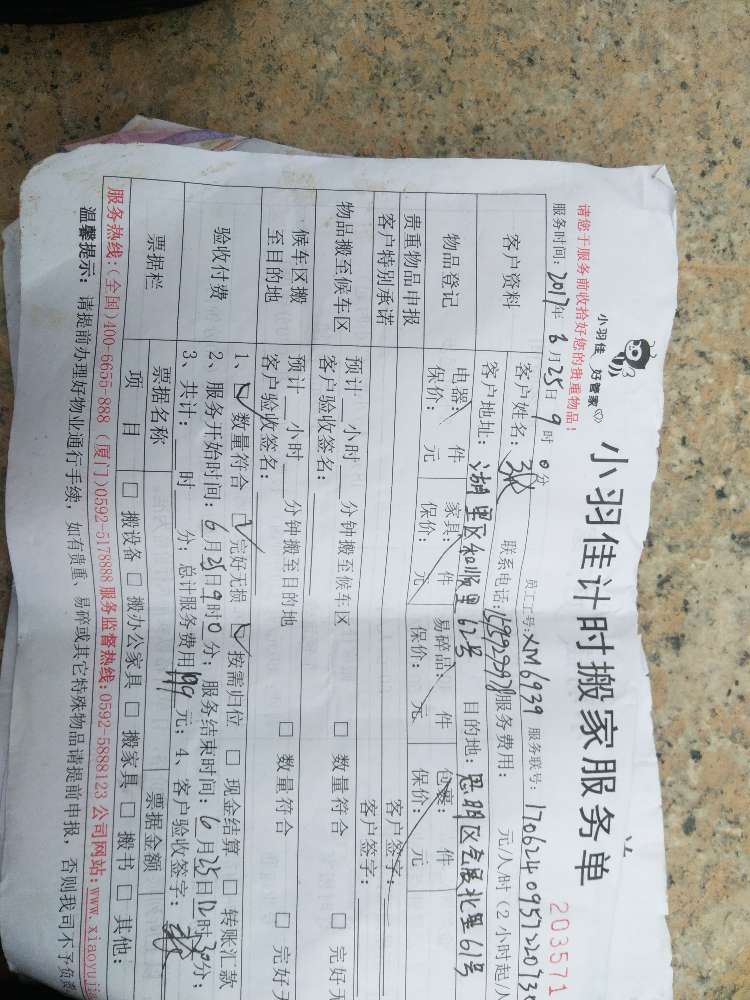 小羽佳 好管家
小羽佳计时搬家服务单
203571
请您于服务前收拾好您的贵重物品！
员工工号：XM6939 服务联号：170624095722073
服务时间：2017年6月25日9时0分
客户资料
客户姓名：
联系电话：
服务费用： 元/小时（2小时起/
客户地址：湖里区和顺里62号 目的地：思明区
北里61号
物品登记
电器： 件 家具： 件 易碎品： 件 包裹： 件
保价： 元 保价： 元 保价： 元 保价： 元
贵重物品申报
客户签字：
客户特别承诺
客户签字：
物品搬至候车区
预计 小时 分钟搬至候车区 □ 数量符合 □ 完好
客户验收签名：
候车区搬至目的地
预计 小时 分钟搬至目的地 □ 数量符合 □ 完好
客户验收签名：
验收付费
1、☑ 数量符合 ☑ 完好无损 ☑ 按需归位 □ 现金结算 □ 转账汇款
2、服务开始时间：6月25日9时0分；服务结束时间：6月25日12时30分；
3、共计： 时 分；总计服务费用199元；4、客户验收签字：
票据栏
票据名称 票据金额
项目 □ 搬设备 □ 搬办公家具 □ 搬家具 □ 搬书 □ 其他：
服务热线：(全国)400-6655-888（厦门)0592-5178888 服务监督热线：0592-5888123 公司网站：www.xiaoyuji
温馨提示：请提前办理好物业通行手续，如有贵重、易碎或其它特殊物品请提前申报，否则我司不予负